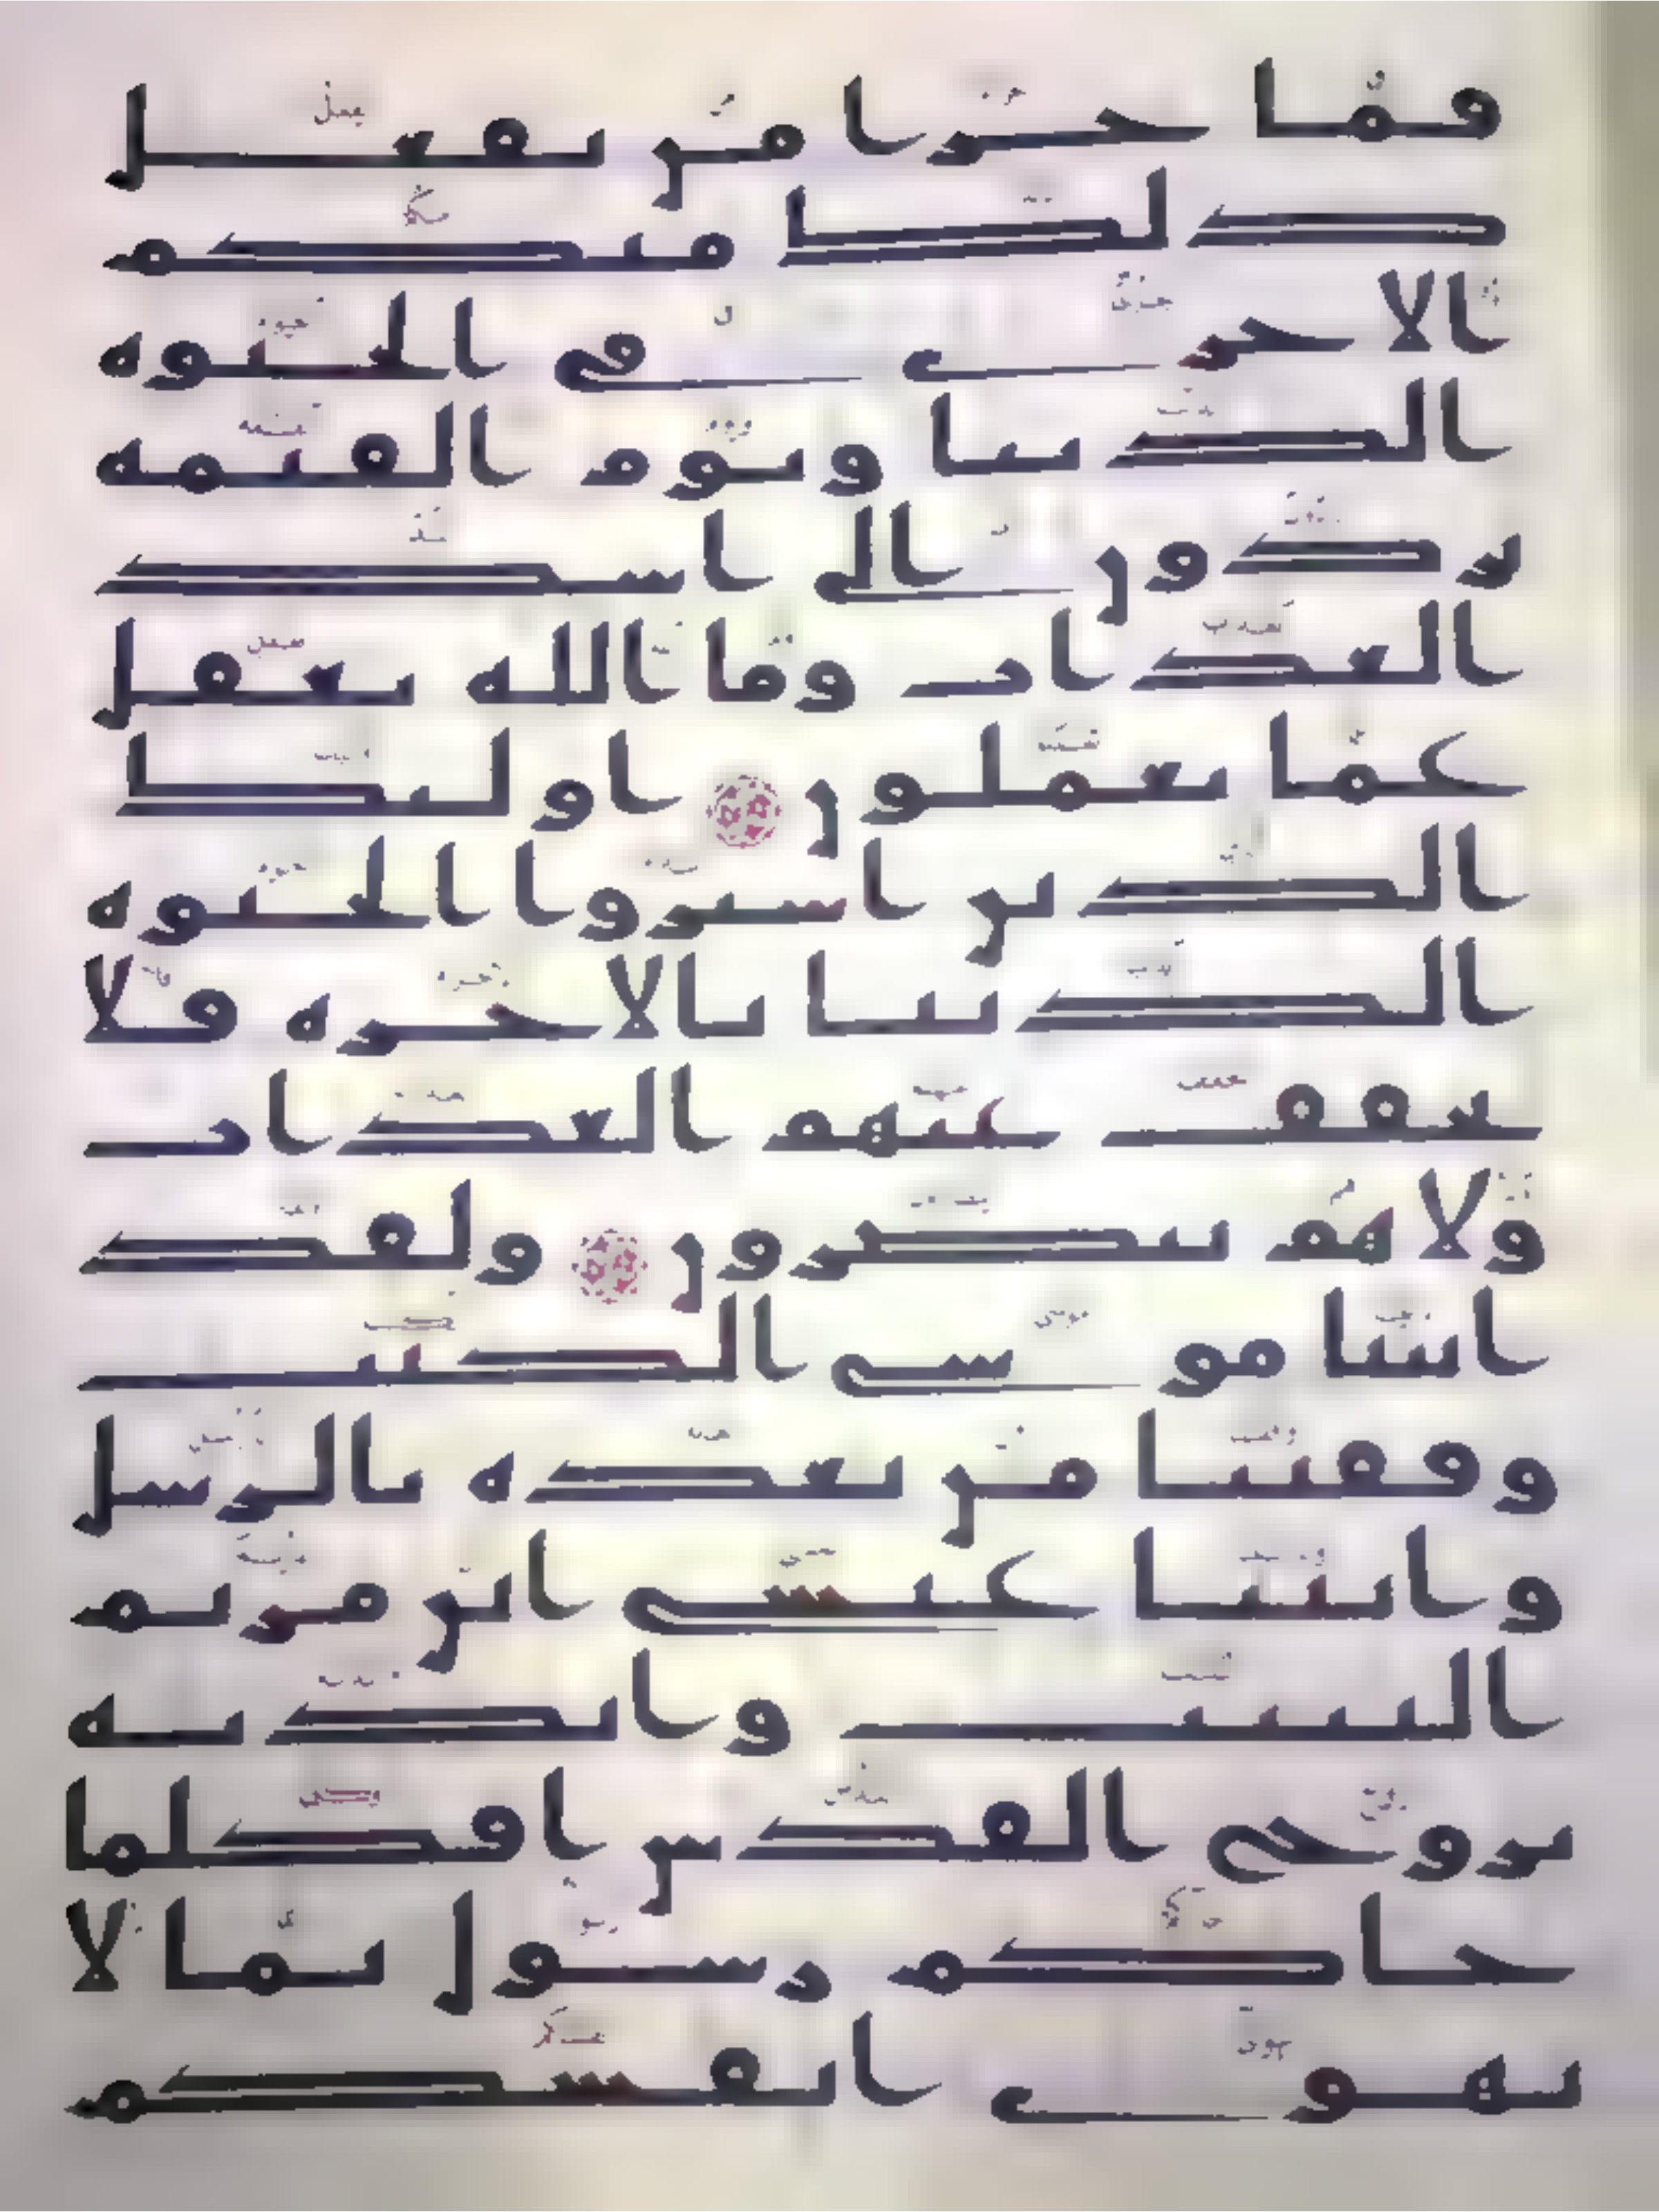 فما جزا من يفعل
ذلك منكم
الا خزي في الحيوة
الدنيا ويوم القيمة
يردون الى اشد
العذاب وما الله بغفل
عما تعملون اولئك
الذين اشتروا الحيوة
الدنيا بالاخرة فلا
يخفف عنهم العذاب
ولا هم ينصرون ولقد
اتينا موسى الكتب
وقفينا من بعده بالرسل
واتينا عيسى ابن مريم
البينت وايدنه
بروح القدس افكلما
جاكم رسول بما لا
تهوى انفسكم